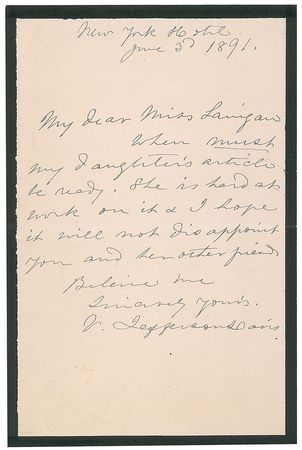 New York Hotel.
June 3d 1891.
My dear Miss Lanigan
When must
my daughter's article
be ready. She is hard at
work on it & I hope
it will not disappoint
you and her other friends
Believe me
Sincerely yours.
V. Jefferson Davis